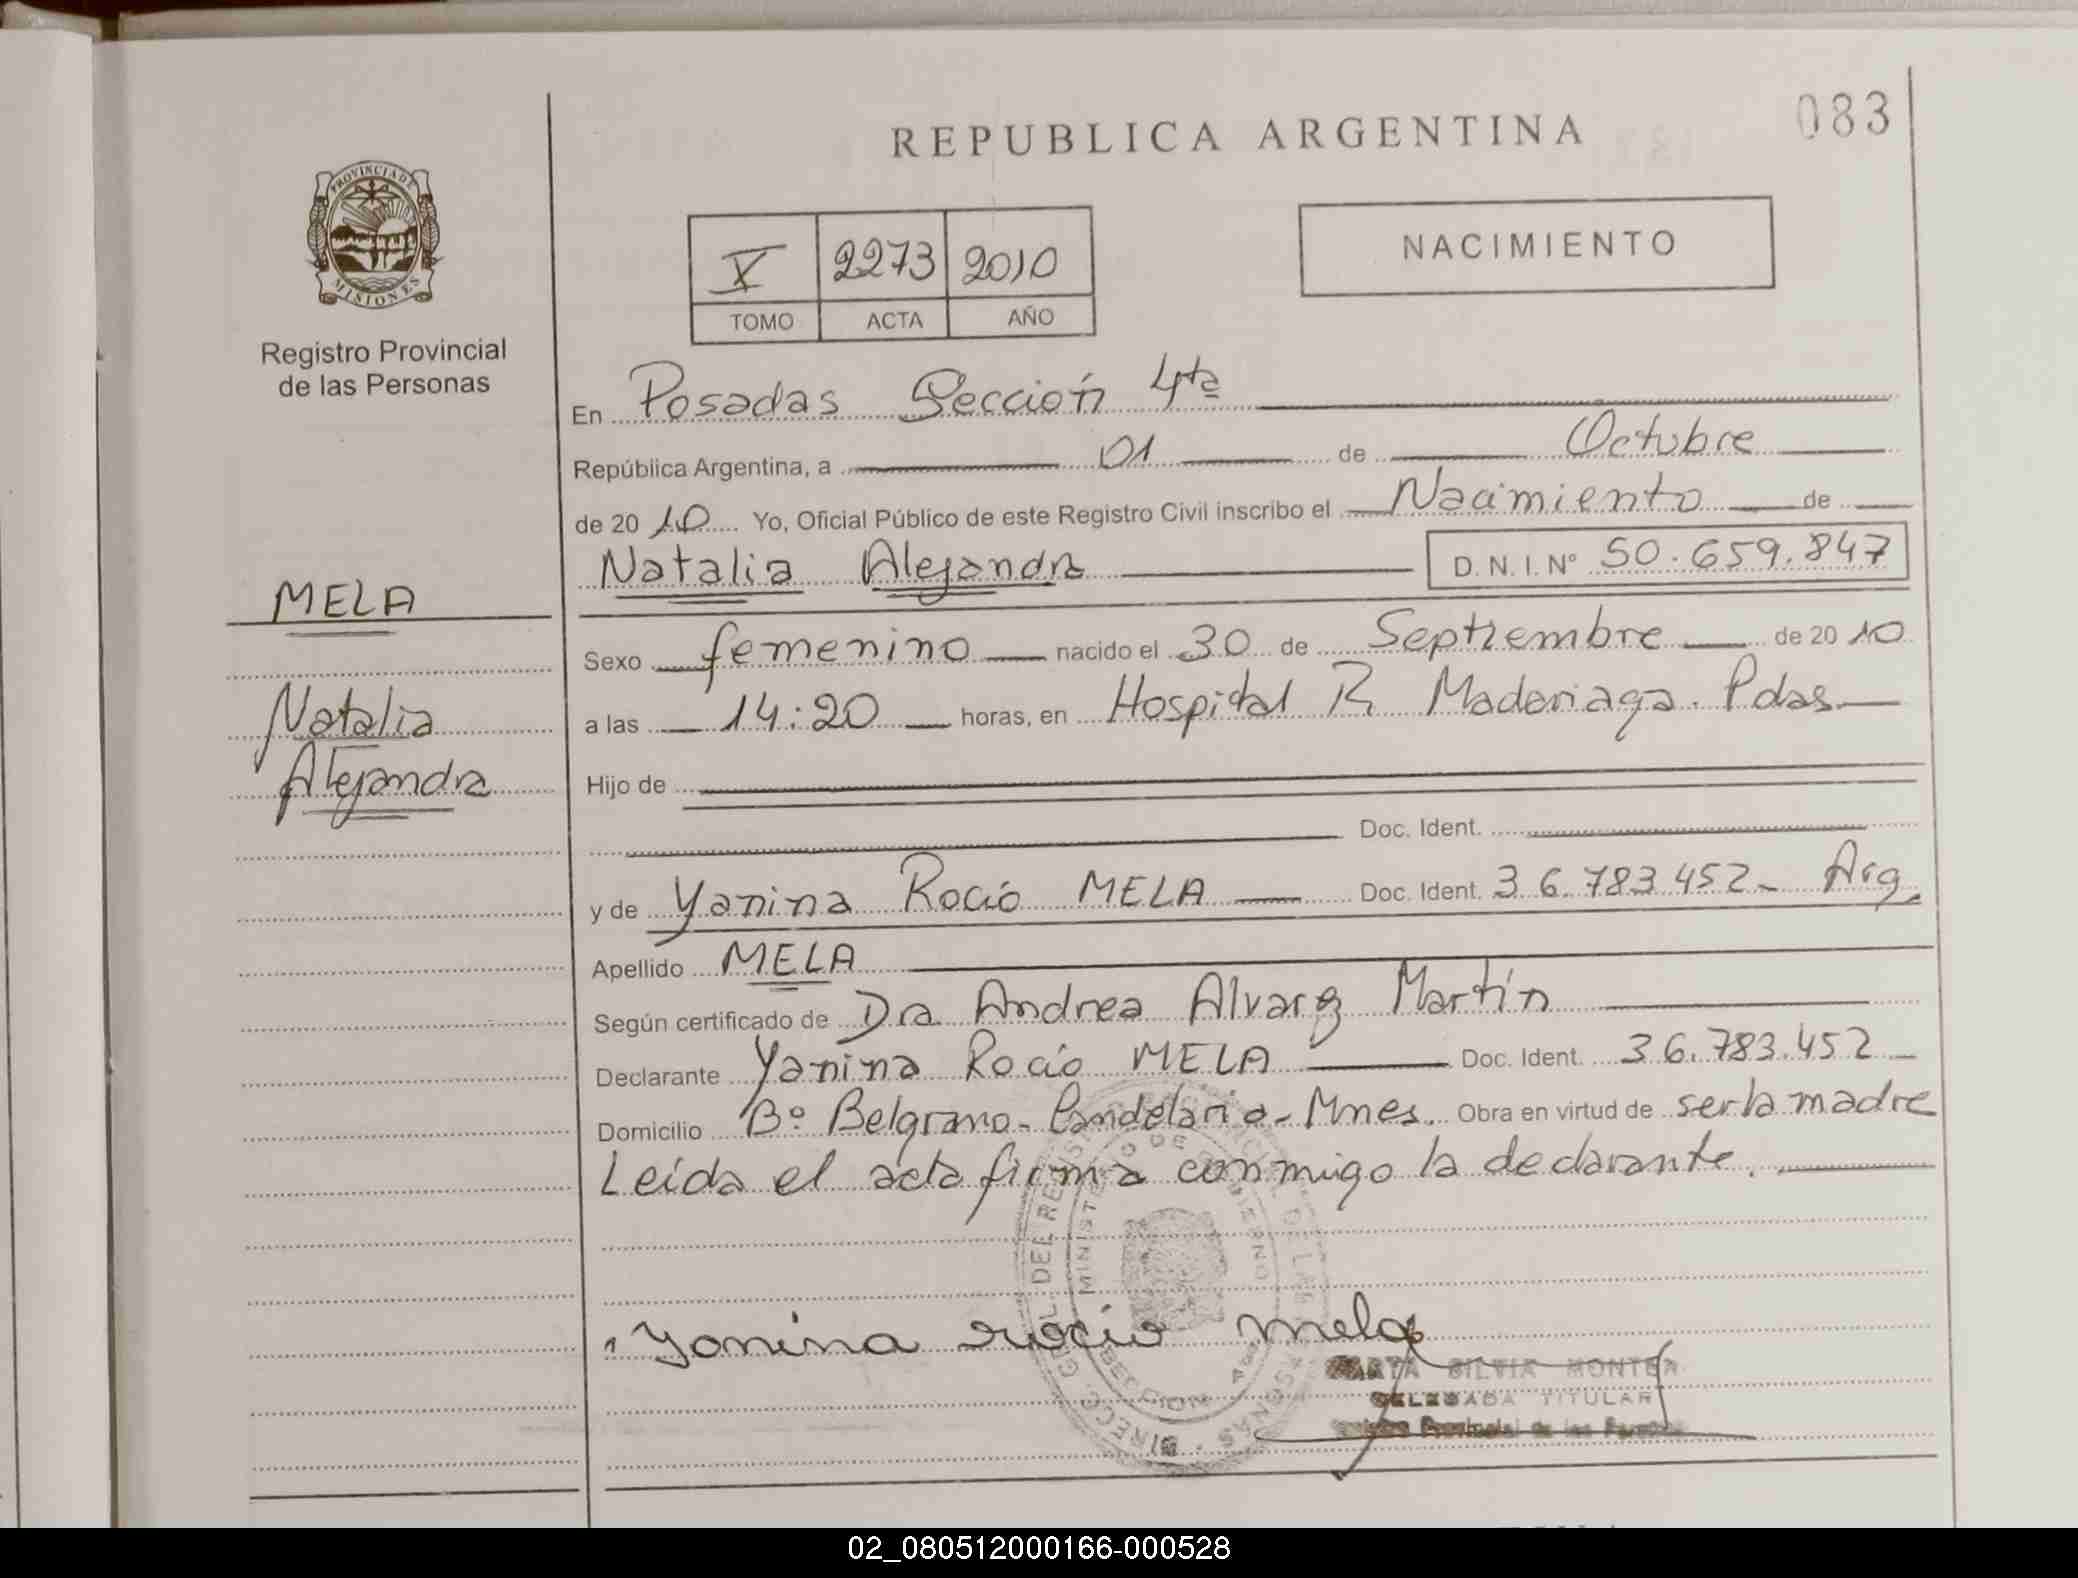 083
REPUBLICA ARGENTINA
PROVINCIA DE
MISIONES
Registro Provincial
de las Personas
V 2273 2010
TOMO ACTA AÑO
NACIMIENTO
En Posadas Sección 4ta
República Argentina, a 01 de Octubre
de 2010 Yo, Oficial Público de este Registro Civil inscribo el Nacimiento de
Natalia Alejandra D.N.I. Nº 50.659.847
MELA
Natalia
Alejandra
Sexo femenino nacido el 30 de Septiembre de 2010
a las 14:20 horas, en Hospital R Madariaga. Pdas
Hijo de
Doc. Ident.
y de Yanina Rocío MELA Doc. Ident. 36.783.452- Arg.
Apellido MELA
Según certificado de Dra Andrea Alvarez Martín
Declarante Yanina Rocío MELA Doc. Ident. 36.783.452
Domicilio Bº Belgrano - Candelaria - Mnes. Obra en virtud de ser la madre
Leída el acta firma conmigo la declarante.
yanina rocio mela
SILVIA MONTE
DELEGADA TITULAR
Provincial de las
02_080512000166-000528